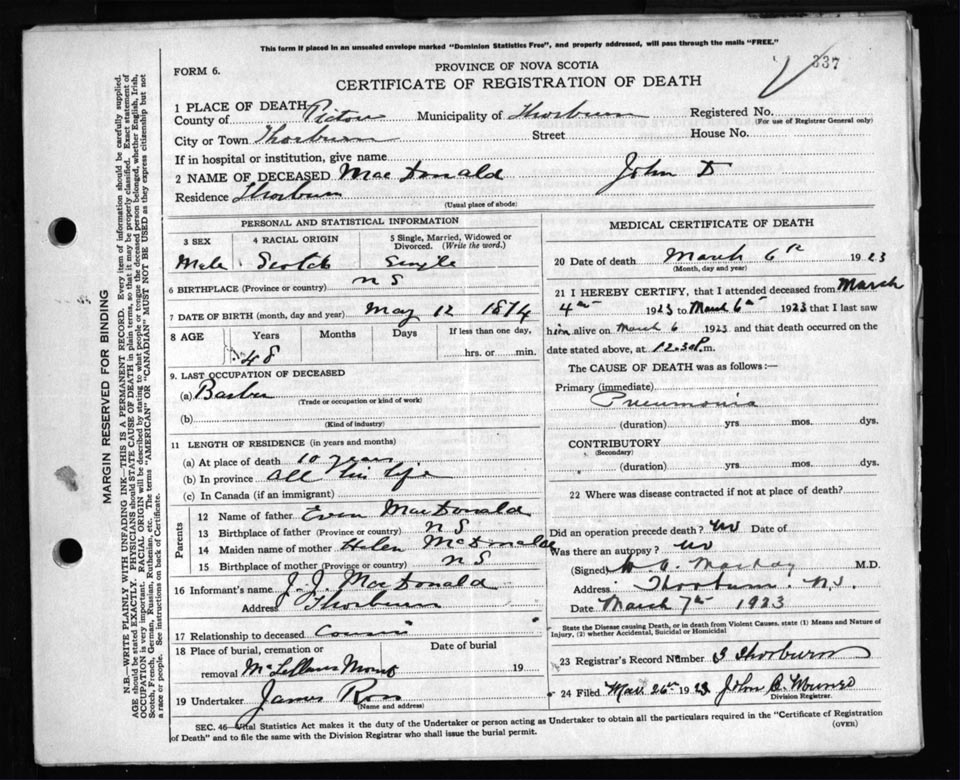 This form if placed in an unsealed envelope marked "Dominion Statistics Free", and properly addressed, will pass through the mails "FREE."
FORM 6.
PROVINCE OF NOVA SCOTIA
337
CERTIFICATE OF REGISTRATION OF DEATH
1 PLACE OF DEATH
County of Pictou Municipality of Thorburn Registered No.
(For use of Registrar General only)
City or Town Thorburn Street House No.
If in hospital or institution, give name
2 NAME OF DECEASED MacDonald John D
Residence Thorburn
(Usual place of abode)
PERSONAL AND STATISTICAL INFORMATION
3 SEX 4 RACIAL ORIGIN 5 Single, Married, Widowed or Divorced. (Write the word.)
Male Scotch Single
6 BIRTHPLACE (Province or country) N S
7 DATE OF BIRTH (month, day and year) May 12 1874
8 AGE Years Months Days If less than one day,
48 hrs. or min.
9. LAST OCCUPATION OF DECEASED
(a) Barber
(Trade or occupation or kind of work)
(b)
(Kind of industry)
11 LENGTH OF RESIDENCE (in years and months)
(a) At place of death 10 years
(b) In province all his life
(c) In Canada (if an immigrant)
Parents
12 Name of father Even MacDonald
13 Birthplace of father (Province or country) N S
14 Maiden name of mother Helen McDonald
15 Birthplace of mother (Province or country) N S
16 Informant's name J. J. MacDonald
Address Thorburn
17 Relationship to deceased Cousin
18 Place of burial, cremation or removal Date of burial
McLellans Mount 19
19 Undertaker James Ross
(Name and address)
MEDICAL CERTIFICATE OF DEATH
20 Date of death March 6th 1923
(Month, day and year)
21 I HEREBY CERTIFY, that I attended deceased from March
4th 1923 to March 6th 1923 that I last saw
him alive on March 6 1923 and that death occurred on the
date stated above, at 12.30 P.m.
The CAUSE OF DEATH was as follows:—
Primary (immediate)
Pneumonia
(duration) yrs mos. dys.
CONTRIBUTORY
(Secondary)
(duration) yrs. mos. dys.
22 Where was disease contracted if not at place of death?
Did an operation precede death? No Date of
Was there an autopsy? No
(Signed) MacKay M.D.
Address Thorburn N.S.
Date March 7th 1923
State the Disease causing Death, or in death from Violent Causes, state (1) Means and Nature of
Injury, (2) whether Accidental, Suicidal or Homicidal
23 Registrar's Record Number 3 Thorburn
24 Filed Mar. 26th 1923 John
Division Registrar.
SEC. 46—Vital Statistics Act makes it the duty of the Undertaker or person acting as Undertaker to obtain all the particulars required in the "Certificate of Registration
of Death" and to file the same with the Division Registrar who shall issue the burial permit.
(OVER)
MARGIN RESERVED FOR BINDING
N.B.—WRITE PLAINLY WITH UNFADING INK—THIS IS A PERMANENT RECORD. Every item of information should be carefully supplied.
AGE should be stated EXACTLY. PHYSICIANS should STATE CAUSE OF DEATH in plain terms, so that it may be properly classified. Exact statement of
OCCUPATION is very important. RACIAL ORIGIN will be described by stating to what people or tongue the deceased person belonged, whether English, Irish,
Scotch, French, German, Russian, Ruthenian, etc. The terms "AMERICAN" OR "CANADIAN" MUST NOT BE USED as they express citizenship but not
a race or people. See instructions on back of Certificate.